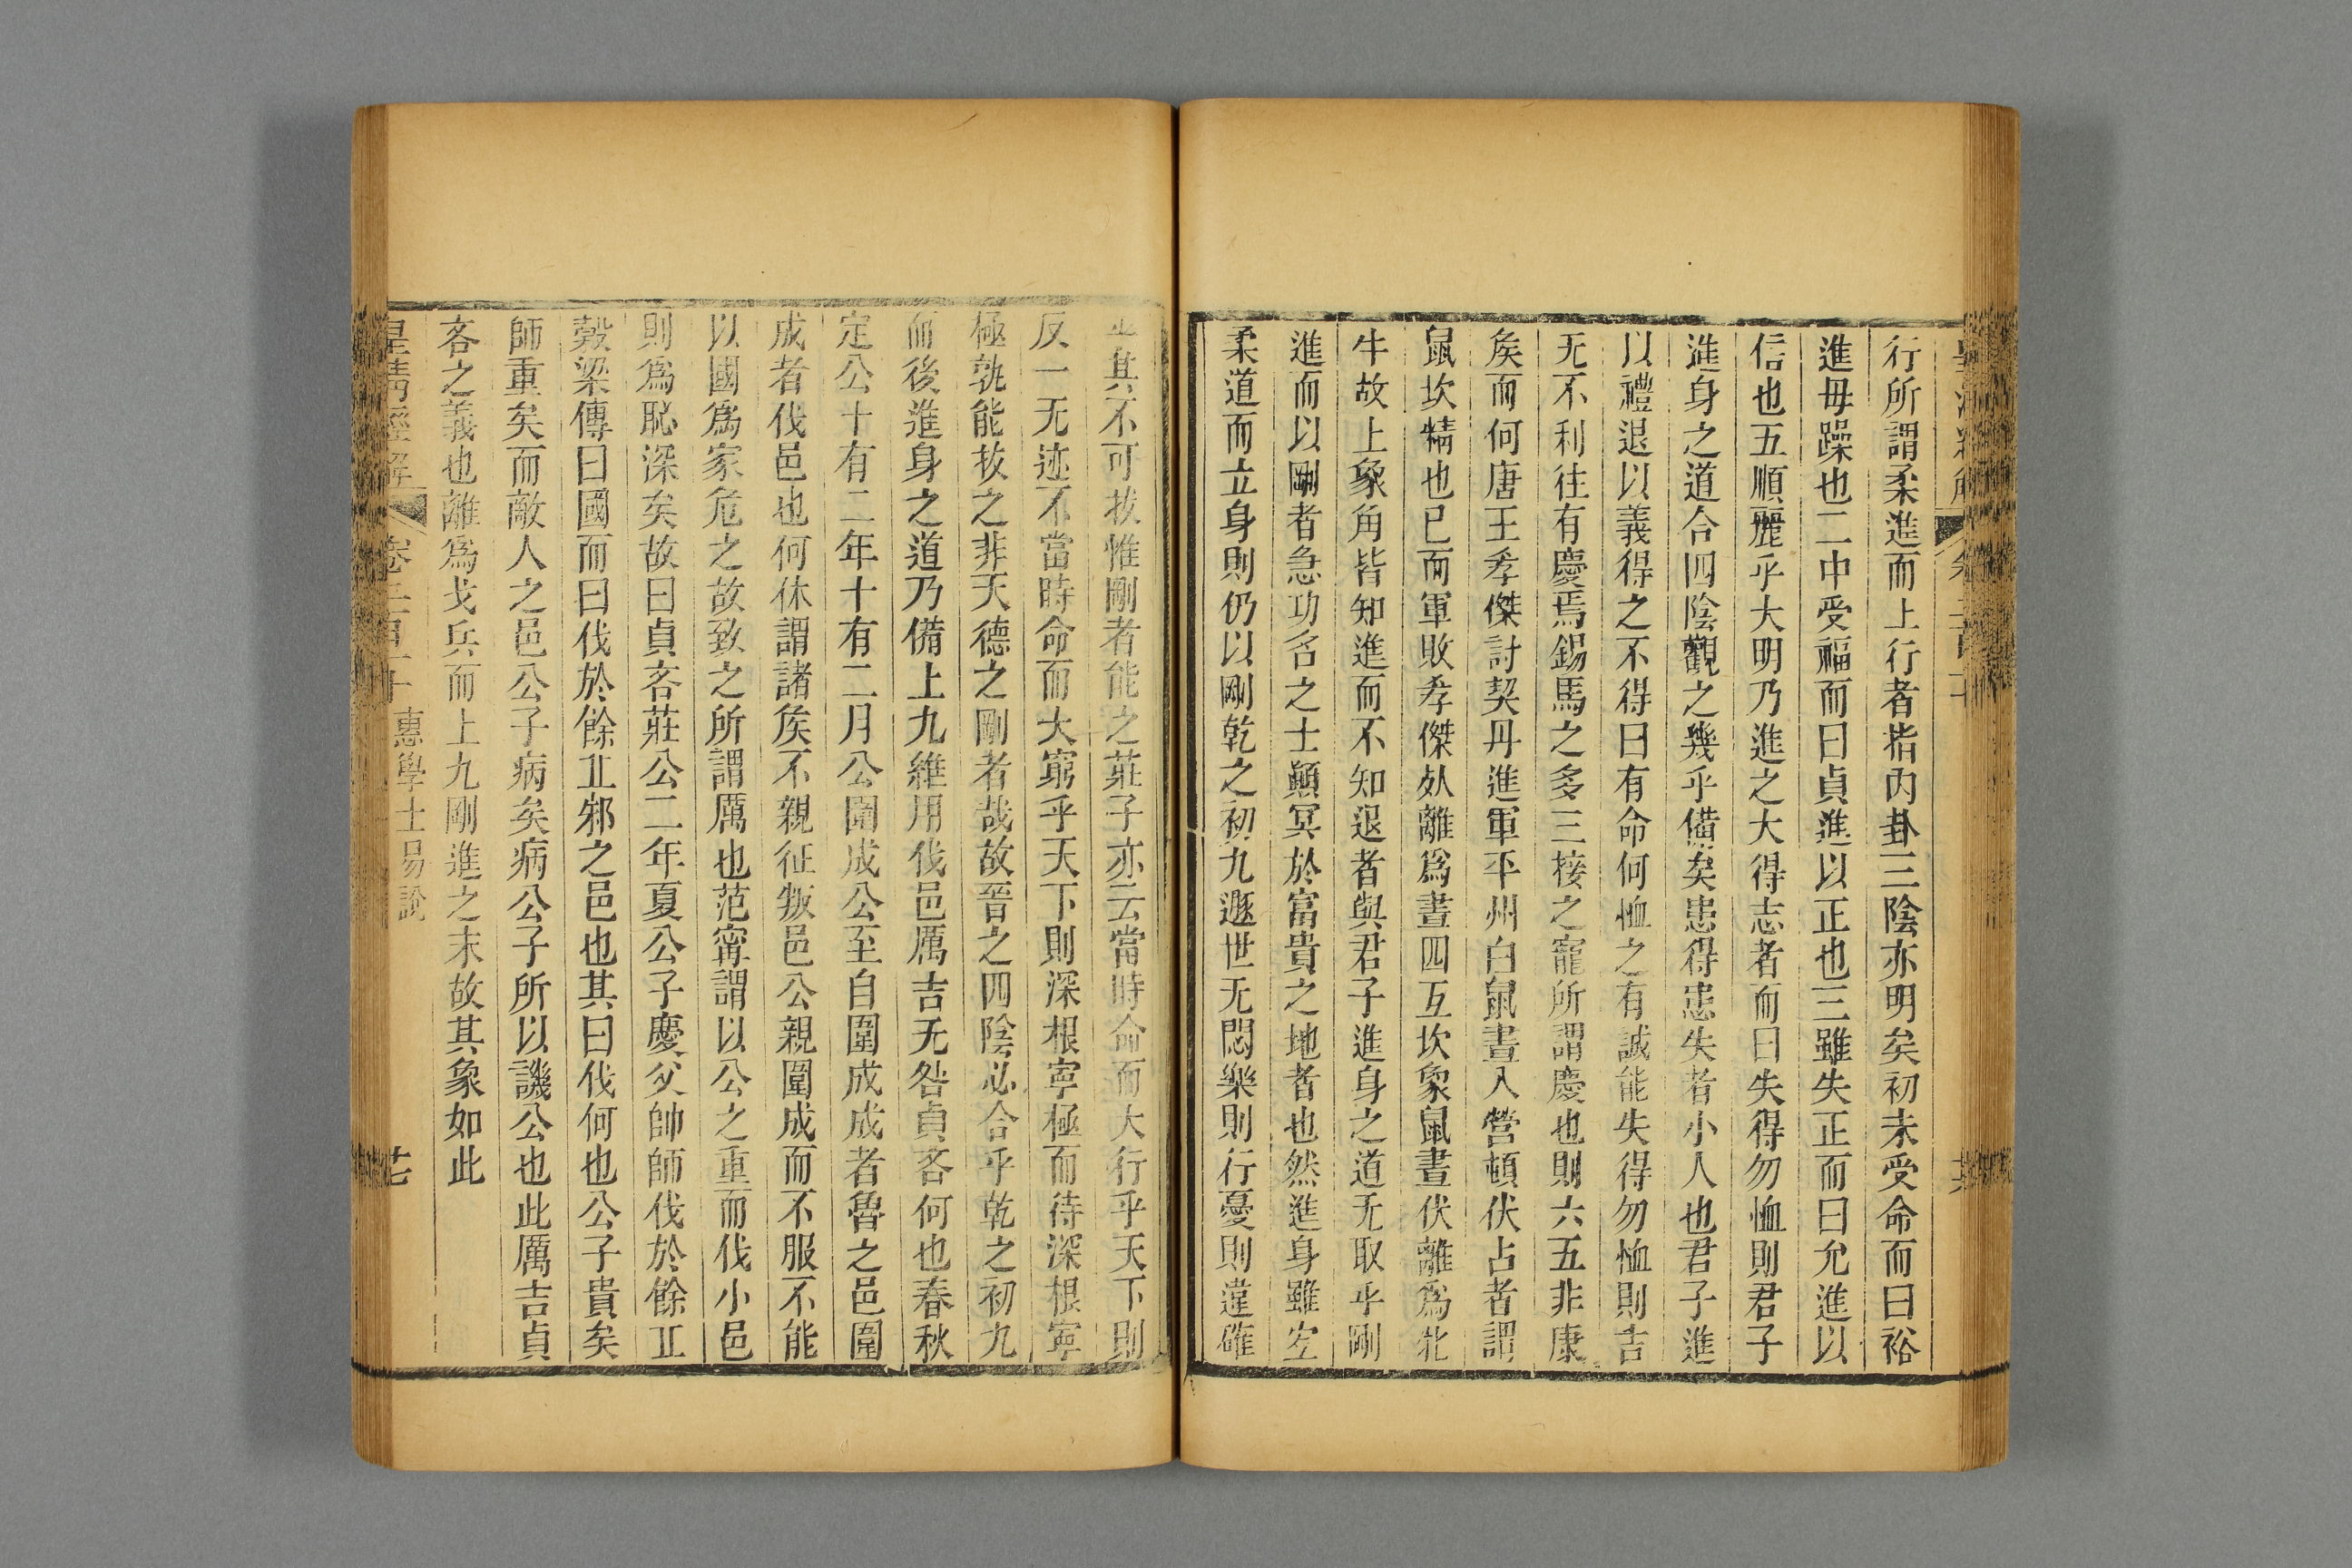 行所謂柔進而上行者指内卦三陰亦明矣初未受命而曰裕
進毋躁也二中受福而曰貞進以正也三雖失正而曰允進以
信也五順麗乎大明乃進之大得志者而曰失得勿恤則君子
進身之道合四陰觀之幾乎備矣患得患失者小人也君子進
以禮退以義得之不得曰有命何恤之有誠能失得勿恤則吉
无不利往有慶焉錫馬之多三接之寵所謂慶也則六五非康
矦而何唐王孝傑討契丹進軍平州白鼠晝入營頓伏占者謂
鼠坎精也已而軍敗孝傑死離爲晝四互坎象鼠晝伏離爲牝
牛故上象角皆知進而不知退者與君子進身之道无取乎剛
進而以剛者急功名之士顚冥於富貴之地者也然進身雖空
柔道而立身則仍以剛乾之初九遯世无悶樂則行憂則違確
乎其不可拔惟剛者能之莊子亦云當時命而大行乎天下則
反一无迹不當時命而大窮乎天下則深根寧極而待深根寧
極孰能拔之非天德之剛者哉故晉之四陰必合乎乾之初九
而後進身之道乃備上九維用伐邑厲吉无咎貞吝何也春秋
定公十有二年十有二月公圍成公至自圍成成者魯之邑圍
成者伐邑也何休謂諸矦不親征叛邑公親圍成而不服不能
以國爲家危之故致之所謂厲也范寗謂以公之重而伐小邑
則爲恥深矣故曰貞吝莊公二年夏公子慶父帥師伐於餘丘
穀梁傳曰國而曰伐於餘丘邾之邑也其曰伐何也公子貴矣
師重矣而敵人之邑公子病矣病公子所以譏公也此厲吉貞
吝之義也離爲戈兵而上九剛進之末故其象如此
皇清經解
惠學士易說